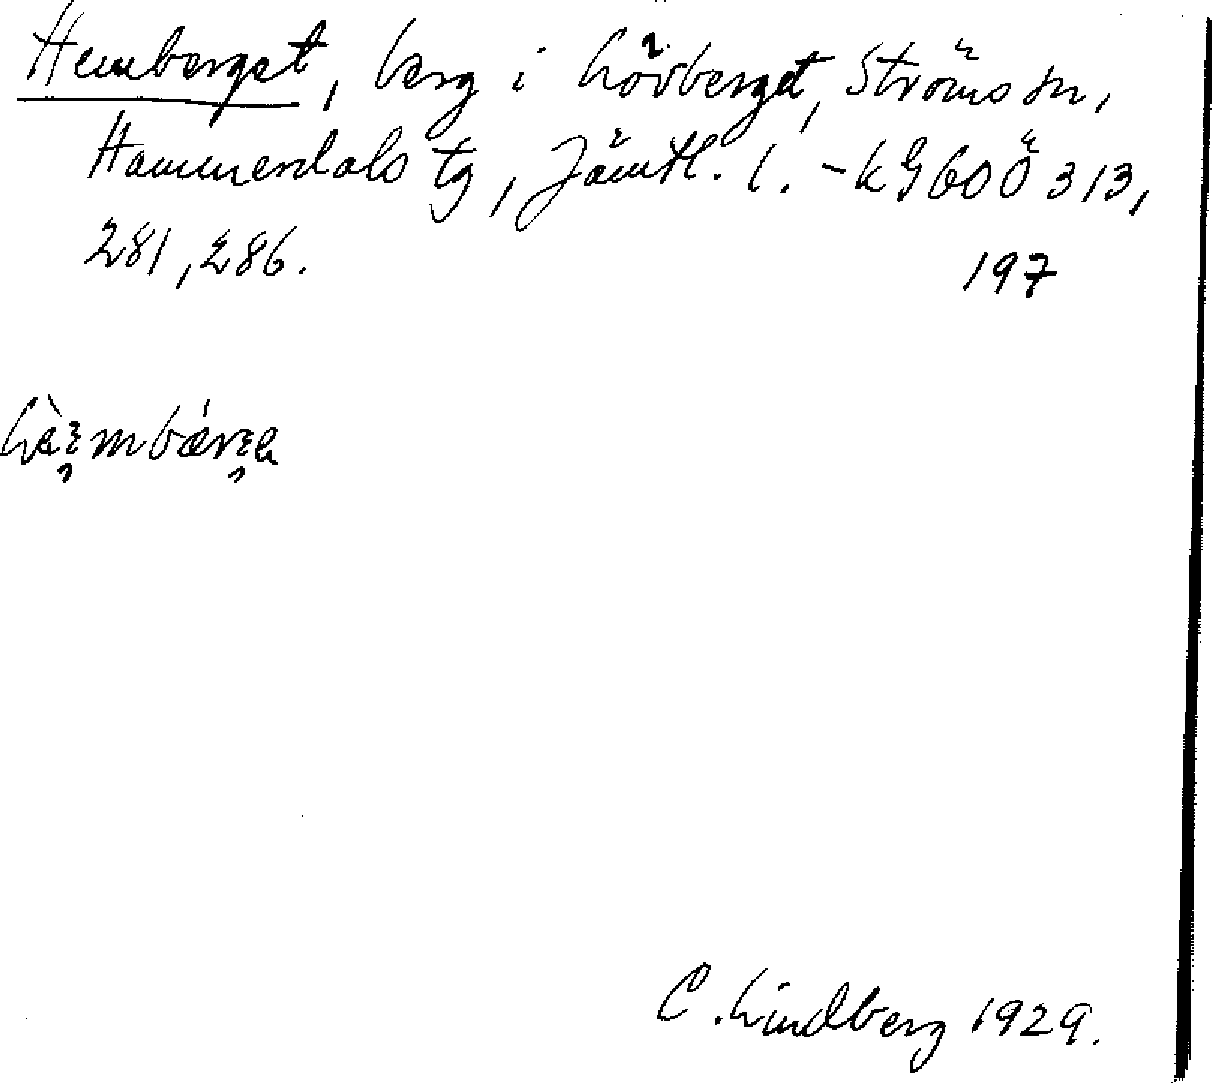 Hemberget, berg i Lövberget, Ströms sn,
Hammerdals tg, Jämtl. l. - kG 60Ö 313,
281, 286. 197
C. Lindberg 1929.